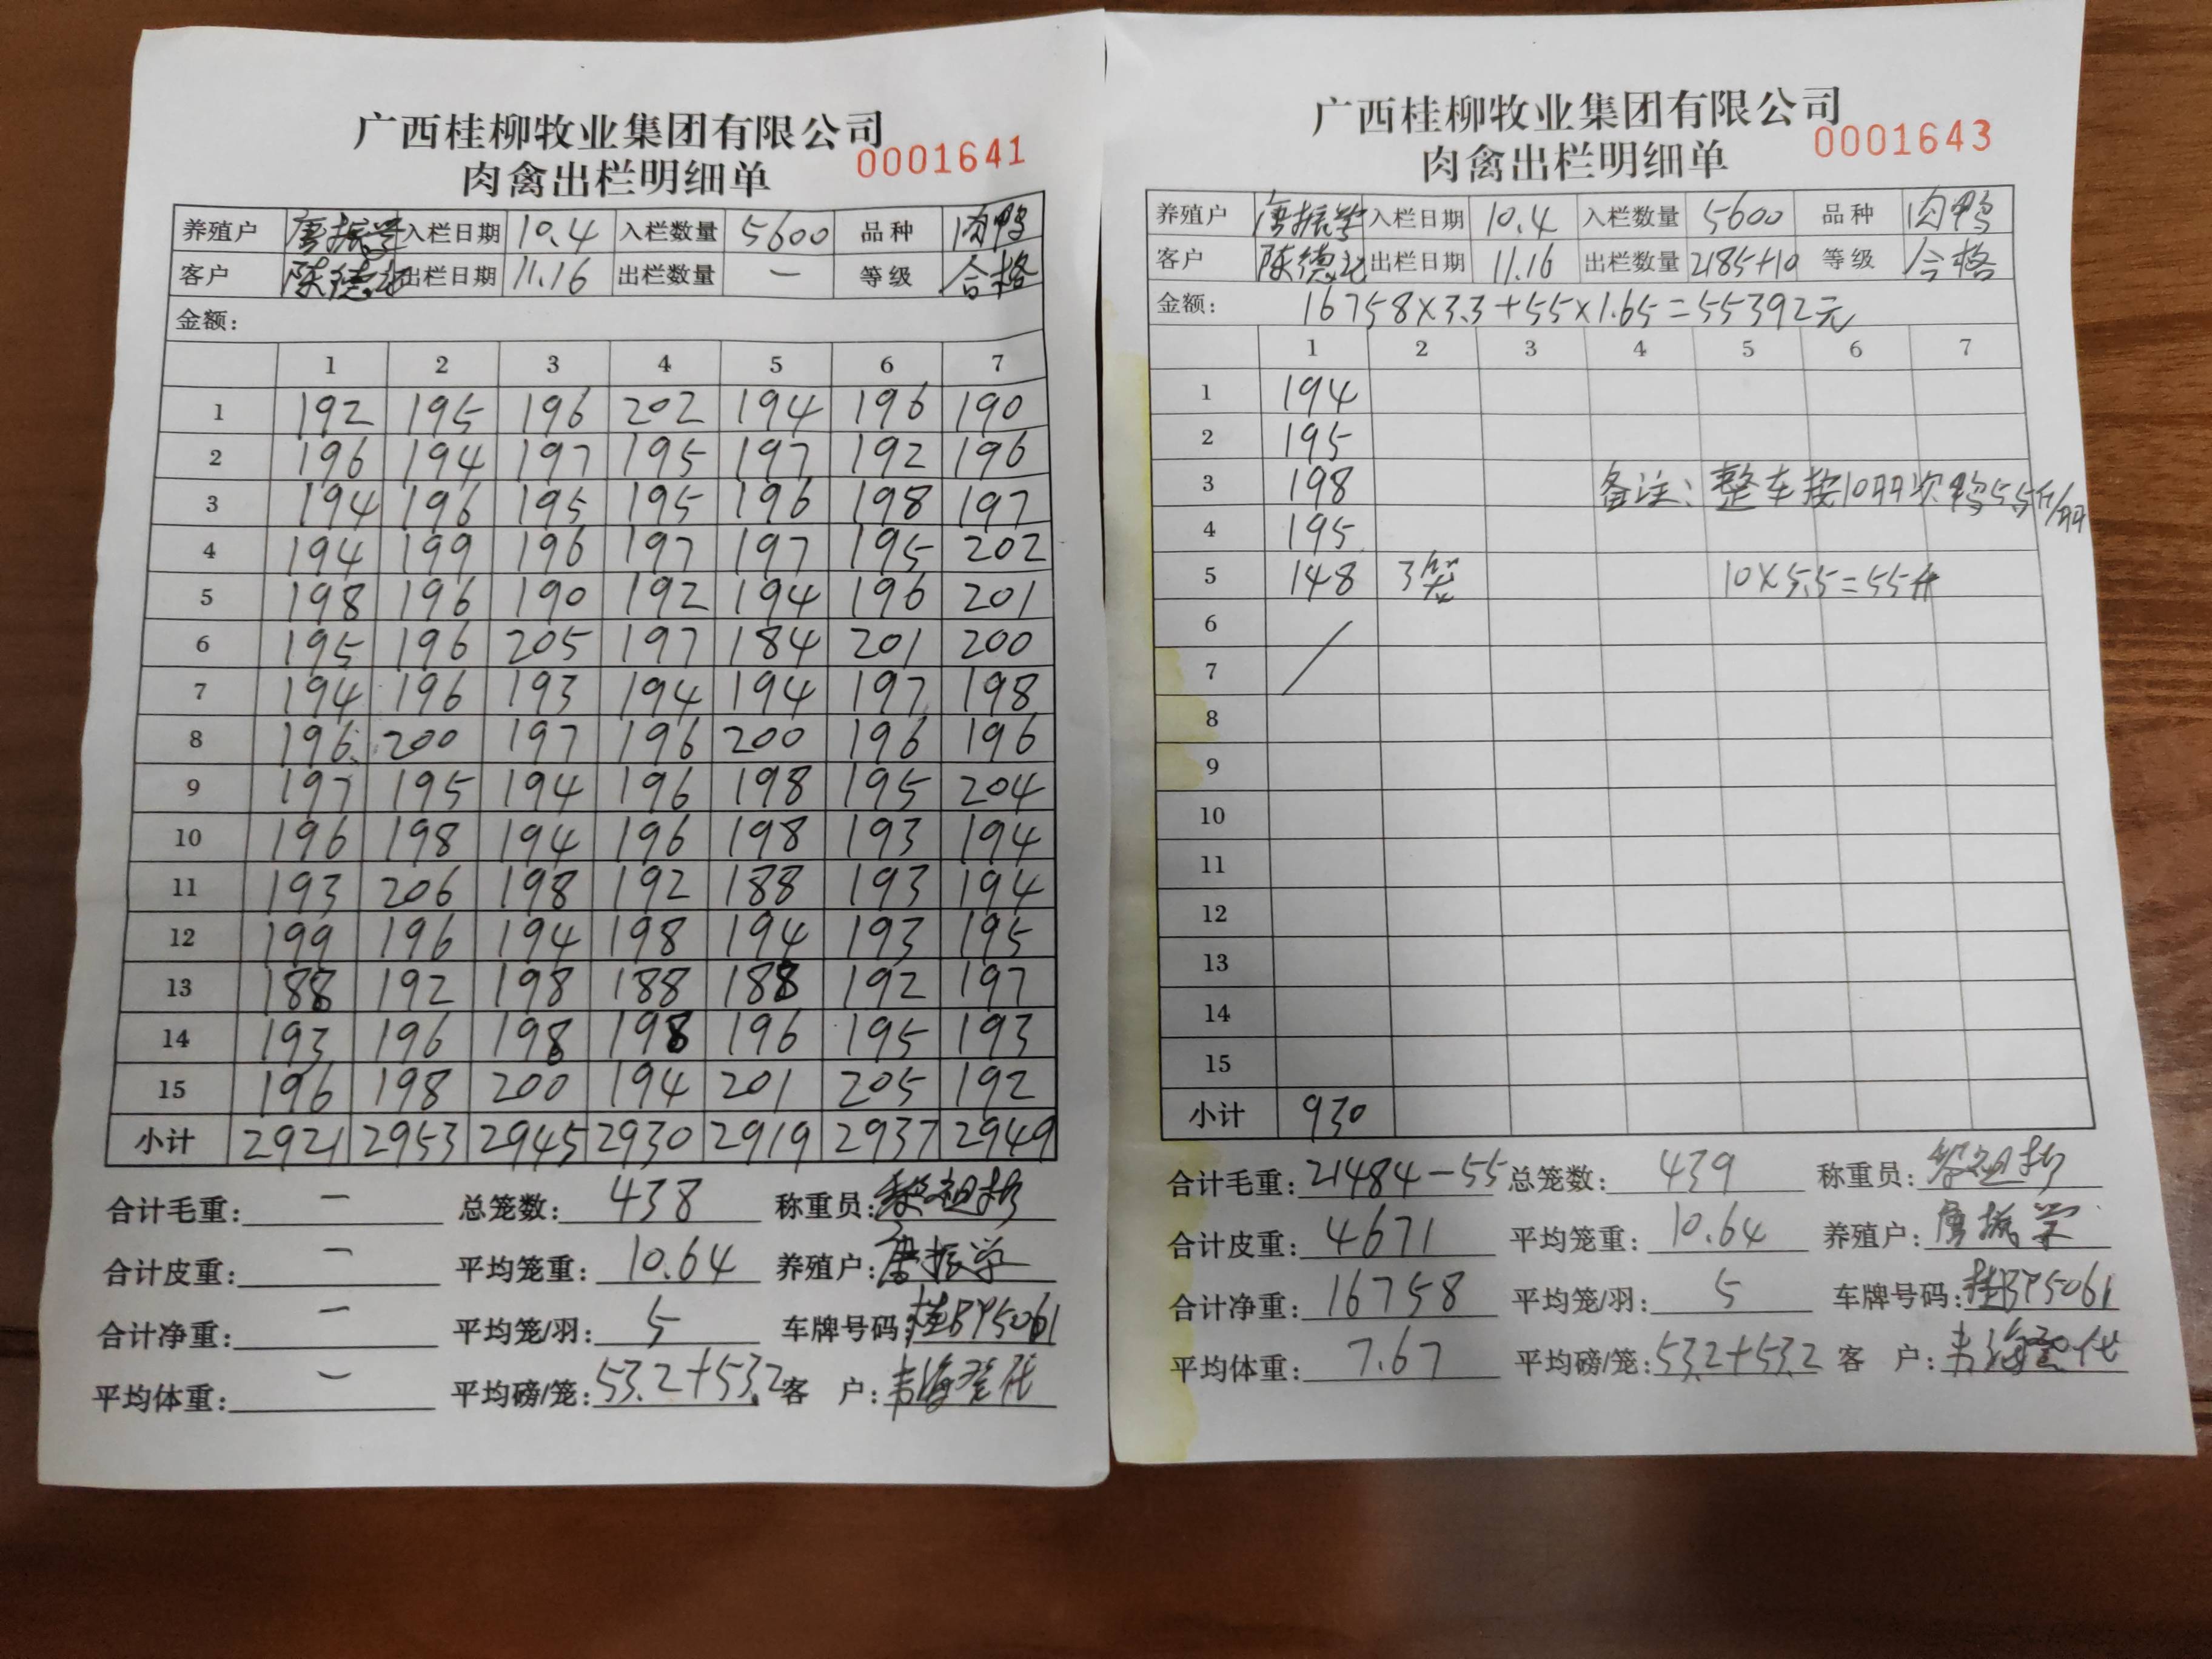 广西桂柳牧业集团有限公司
肉禽出栏明细单 0001641
养殖户 唐振学 入栏日期 10.4 入栏数量 5600 品种 肉鸭
客户 陈德 出栏日期 11.16 出栏数量 — 等级 合格
金额:
1 2 3 4 5 6 7
1 192 195 196 202 194 196 190
2 196 194 197 195 197 192 196
3 194 196 195 195 196 198 197
4 194 199 196 197 197 195 202
5 198 196 190 192 194 196 201
6 195 196 205 197 184 201 200
7 194 196 193 194 194 197 198
8 196 200 197 196 200 196 196
9 197 195 194 196 198 195 204
10 196 198 194 196 198 193 194
11 193 206 198 192 188 193 194
12 199 196 194 198 194 193 195
13 188 192 198 188 188 192 197
14 193 196 198 198 196 195 193
15 196 198 200 194 201 205 192
小计 2921 2953 2945 2930 2919 2937 2949
合计毛重: — 总笼数: 438 称重员: 黎祖扬
合计皮重: — 平均笼重: 10.64 养殖户: 唐振学
合计净重: — 平均笼/羽: 5 车牌号码: 桂BP5061
平均体重: — 平均磅/笼: 53.2+53.2 客 户: 韦海 代
广西桂柳牧业集团有限公司
肉禽出栏明细单 0001643
养殖户 唐振学 入栏日期 10.4 入栏数量 5600 品种 肉鸭
客户 陈德 出栏日期 11.16 出栏数量 2185+10 等级 合格
金额: 16758×3.3+55×1.65=55392元
1 2 3 4 5 6 7
1 194
2 195
3 198 备注: 整车按10羽次鸭5.5斤/羽
4 195
5 148 3笼 10×5.5=55斤
6
7
8
9
10
11
12
13
14
15
小计 930
合计毛重: 21484-55 总笼数: 439 称重员: 黎祖扬
合计皮重: 4671 平均笼重: 10.64 养殖户: 唐振学
合计净重: 16758 平均笼/羽: 5 车牌号码: 桂BP5061
平均体重: 7.67 平均磅/笼: 53.2+53.2 客 户: 韦海 代